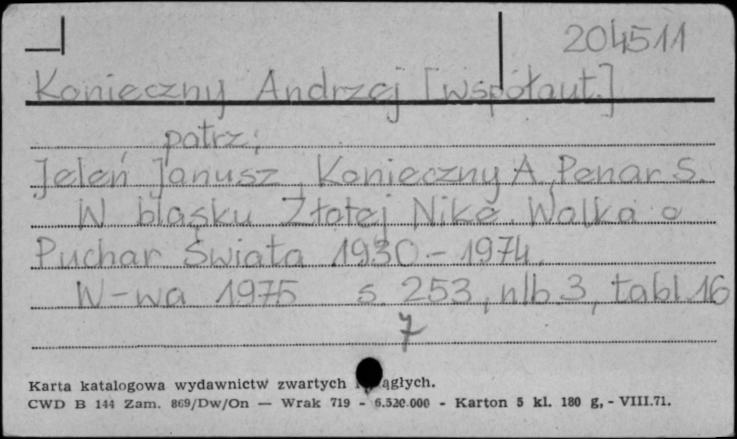 204511
Konieczny Andrzej [współaut.]
patrz:
Jeleń Janusz, Konieczny A, Penar S.
W blasku Złotej Nike. Walka o
Puchar Świata 1930-1974.
W-wa 1975 s. 253, nlb.3, tabl.16
7
Karta katalogowa wydawnictw zwartych
CWD B 144 Zam. 869/Dw/On — Wrak 719 - 6.520.000 - Karton 5 kl. 180 g, - VIII.71.